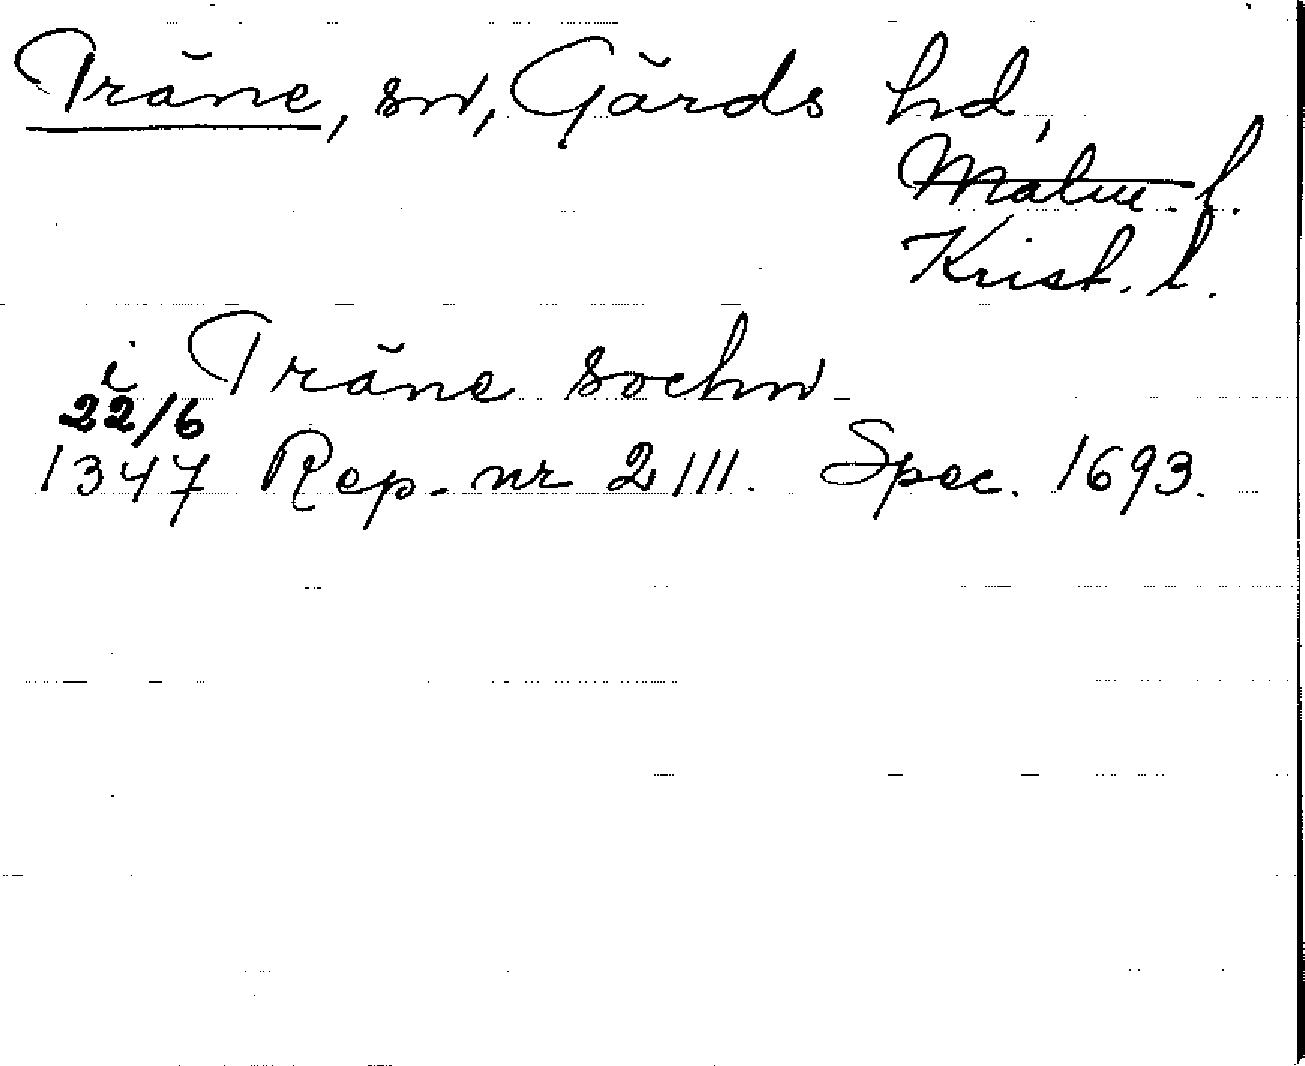 Träne, sn, Gärds hd,
Malm. l.
Krist. l.
i Träne sochn
22/6
1347 Rep. nr 2111. Spec. 1693.